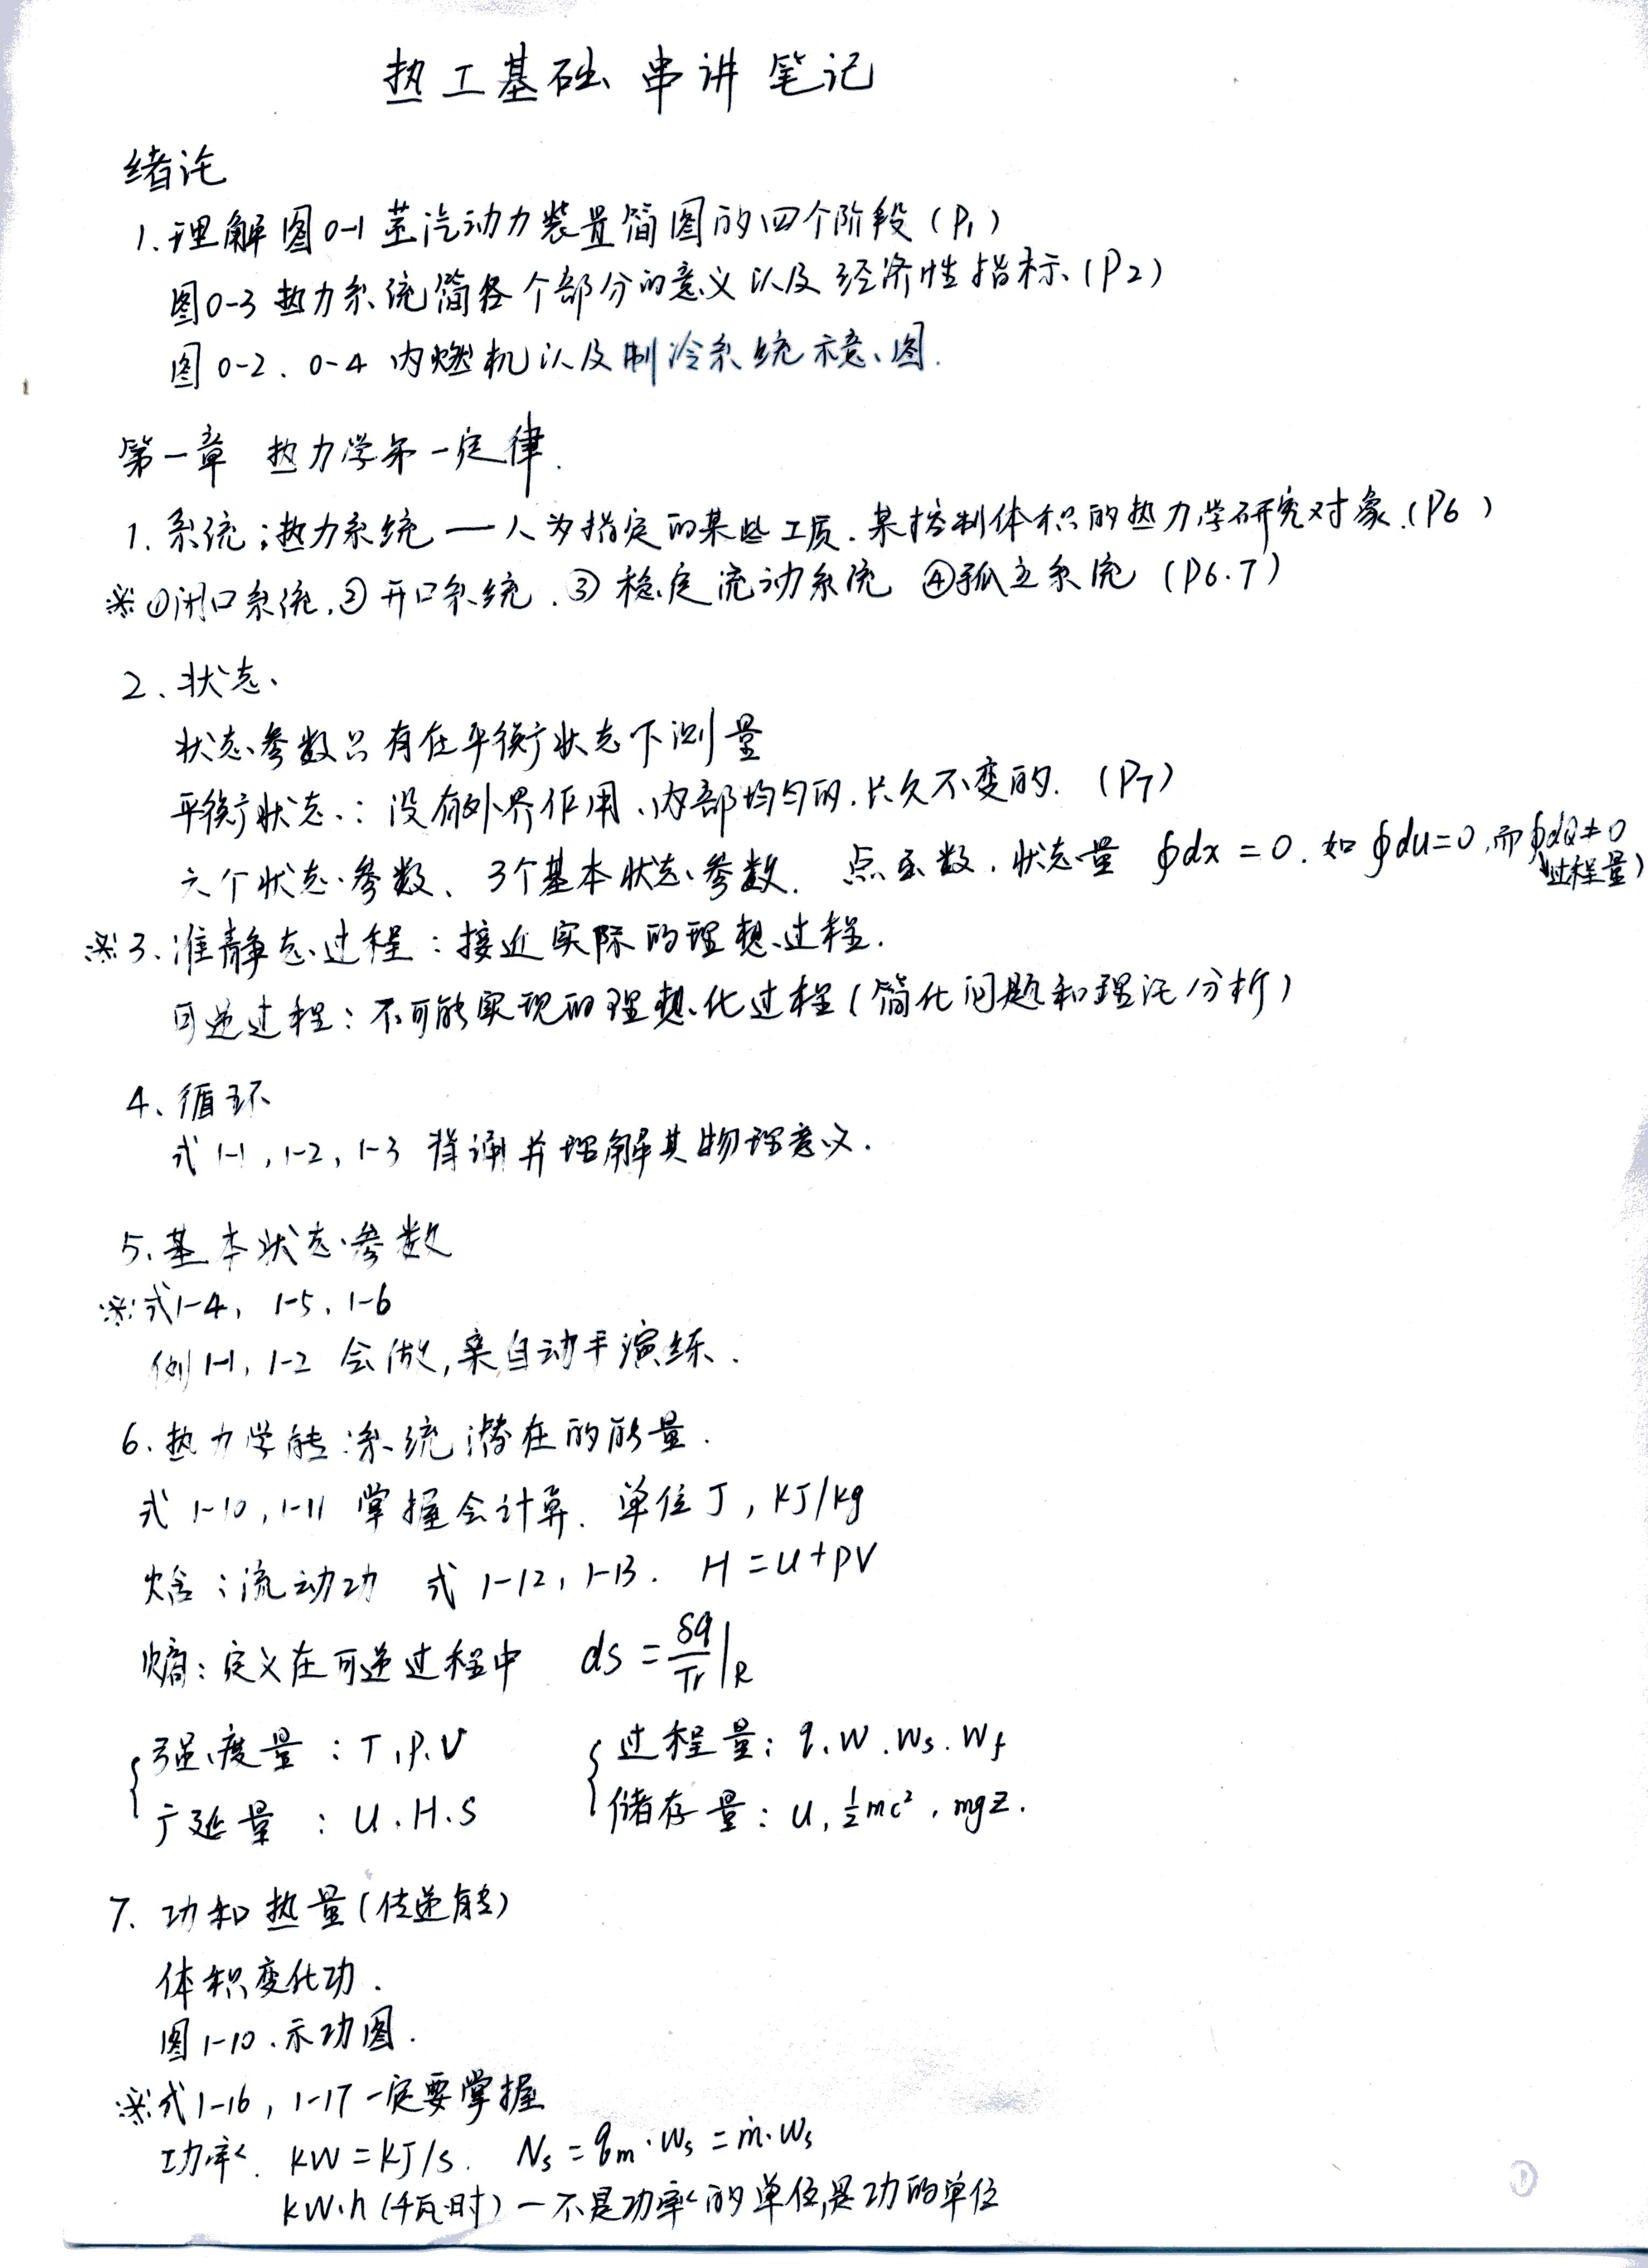 热工基础 串讲 笔记
绪论
1. 理解图0-1 蒸汽动力装置简图的四个阶段（P1）
图0-3 热力系统简各个部分的意义以及经济性指标（P2）
图0-2、0-4 内燃机以及制冷系统示意图.
第一章 热力学第一定律.
1. 系统：热力系统—人为指定的某些工质.某控制体积的热力学研究对象.（P6）
※①闭口系统.②开口系统.③稳定流动系统 ④孤立系统（P6.7）
2、状态、
状态参数只有在平衡状态下测量
平衡状态：没有外界作用、内部均匀的.长久不变的.（P7）
六个状态参数、3个基本状态参数. 点函数.状态量 ∮dx = 0. 如∮du=0,而∮dQ≠0
（过程量）
※3.准静态过程：接近实际的理想过程.
可逆过程：不可能实现的理想化过程（简化问题和理论分析）
4、循环
式1-1,1-2,1-3 背诵并理解其物理意义.
5.基本状态参数
※式1-4, 1-5, 1-6
例1-1, 1-2 会做,亲自动手演练.
6.热力学能：系统潜在的能量.
式 1-10,1-11 掌握会计算. 单位 J, KJ/kg
焓：流动功 式 1-12,1-13. H = U+PV
熵：定义在可逆过程中 ds = δq/Tr|R
强度量：T,P,V 过程量：q.W.Ws.Wf
广延量：U.H.S 储存量：U,½mc²,mgZ.
7. 功和热量（传递能）
体积变化功.
图1-10.示功图.
※式1-16, 1-17一定要掌握
功率. kW=KJ/s. Ns = qm·Ws = ṁ·Ws
kW·h（千瓦时）—不是功率的单位,是功的单位
①